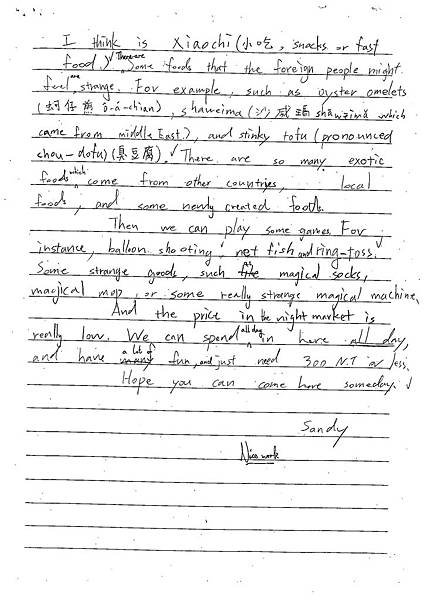 I think is Xiaochi(小吃, snacks or fast
food) ✓ There are some foods that the foreign people might
feel are strange. For example, such as oyster omelets
(蚵仔煎 ô-á-chian), shaweima (沙威瑪 shāwēimǎ which
came from middle East.), and stinky tofu (pronounced
chou-dofu)(臭豆腐). ✓ There are so many exotic
foods which come from other countries, local
foods, and some newly created foods.
Then we can play some games. For
instance, balloon shooting, net fish and ring-toss.
Some strange goods, such as the magical socks,
magical mop, or some really strange magical machine.
And the price in the night market is
really low. We can spend all day in here all day,
and have a lot of many fun, and just need 300 N.T or less.
Hope you can come here someday. ✓
Sandy
Nice work